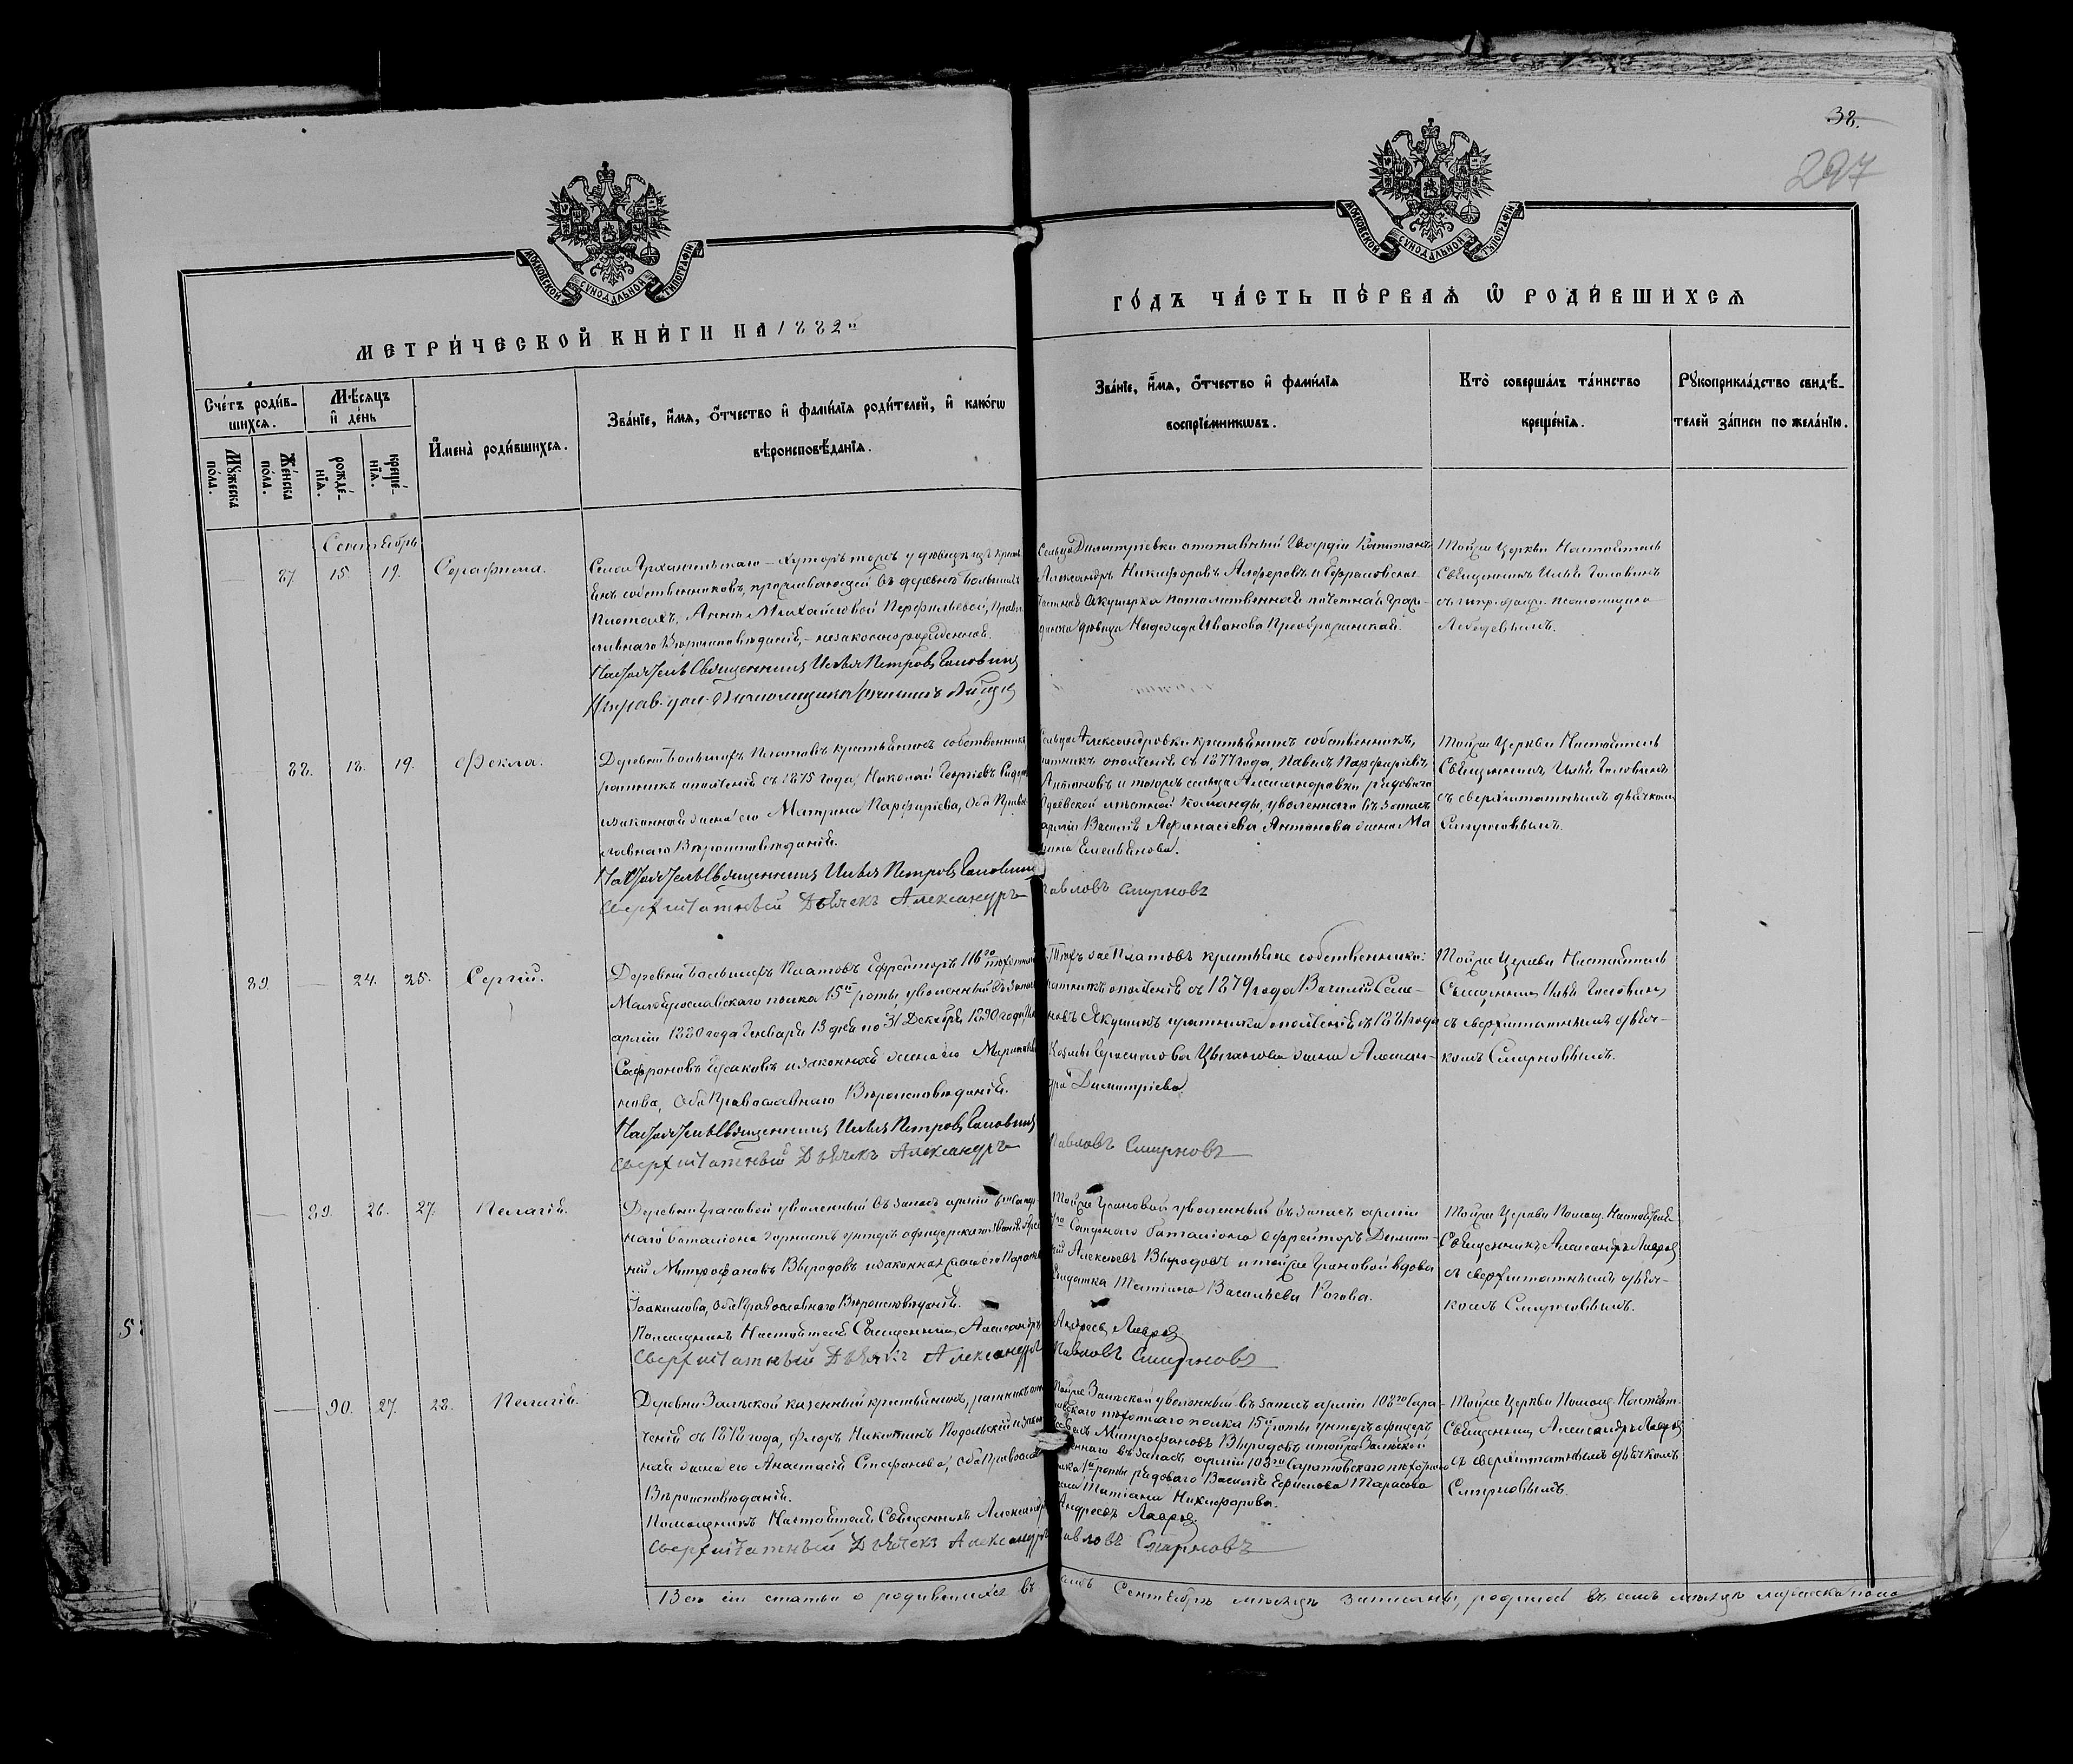 38.
297
МОСКОВСКОЙ СѴНОДАЛЬНОЙ ТИПОГРАФІИ
МОСКОВСКОЙ СѴНОДАЛЬНОЙ ТИПОГРАФІИ
МЕТРИ́ЧЕСКОЙ КНИ́ГИ НА 1882й
ГО́ДЪ ЧА́СТЬ ПЕ́РВАѦ Ѿ РОДИ́ВШИХСѦ
Сче́тъ роди́в-
шихсѧ.
Мꙋ́жеска по́ла.
Же́нска по́ла.
Мѣ́сѧцъ
и҆ де́нь
рожде́-
нїѧ.
креще́-
нїѧ.
И҆мена̀ роди́вшихсѧ.
Зва́нїе, и҆́мѧ, ѻ҆́тчество и҆ фами́лїѧ роди́телей, и҆ како́гѡ
вѣроисповѣ́данїѧ.
Зва́нїе, и҆́мѧ, ѻ҆́тчество и҆ фами́лїѧ
воспрїе́мникѡвъ.
Кто̀ соверша́лъ та́инство
креще́нїѧ.
Рꙋкоприкла́дство свидѣ́-
телей за́писи по жела́нїю.
Сентябрь
87. 15. 19. Серафима.
Села Архангельскаго-Хуторъ тожъ у девицы изъ крест
янъ собственниковъ, проживающей въ деревнѣ Большихъ
Платахъ, Анны Михайловой Перфильевой, Право
славнаго Вѣроисповѣданія, - незаконнорожденная.
Настоятель Священникъ Илья Петровъ Головинъ
Сельца Димитріевки отставный Гвардіи Капитанъ
Александръ Никифоровъ Алферовъ и Ефремовская
Акушерка потомственная почетная граж-
данка девица Надежда Иванова Преображенская.
Тойже Церкви Настоятель
Священникъ Илья Головинъ
съ псаломщика
Лебедевымъ.
88. 18. 19. Ѳекла.
Деревни Большихъ Платовъ крестьянинъ собственникъ
ратникъ ополченія съ 1875 года, Николай Георгіевъ
и законная жена его Матрона Парфиріева, оба Право
славнаго Вѣроисповѣданія.
Настоятель Священникъ Илья Петровъ Головинъ
Сверхштатный Дьячекъ Александръ
Сельца Александровки крестьянинъ собственникъ,
ратникъ ополченія съ 1877 года, Павелъ Парфиріевъ
Антоновъ и тогожъ сельца Александровки рядоваго
Одоевской мѣстной Команды, уволеннаго въ запасъ
арміи Василія Аѳанасіева Антонова жена Ма
Емельянова.
Павловъ Смирновъ
Тойже Церкви Настоятель
Священникъ Илья Головинъ
съ сверхштатнымъ дьячкомъ
Смирновымъ.
89. 24. 25. Сергій.
Деревни Большихъ Платовъ Ефрейторъ 116го пѣхотнаго
Малоярославскаго полка 15й роты, уволенный въ запасъ
арміи 1880 года Генваря 13 дня по 31 Декабря 1890 года,
Сафроновъ и законная жена его
нова, оба Православнаго Вѣроисповѣданія.
Настоятель Священникъ Илья Петровъ Головинъ
Сверхштатный Дьячекъ Александръ
Тѣхъ же Платовъ крестьяне собственники:
ратникъ ополченія съ 1879 года Василій Семе-
новъ Якушинъ и ратника ополченія съ 1881 года
Козьмы Герасимова Цыганова жена Алексан-
дра Димитріева.
Павловъ Смирновъ
Тойже Церкви Настоятель
Священникъ Илья Головинъ
съ сверхштатнымъ дьяч-
комъ Смирновымъ.
89. 26. 27. Пелагія.
Деревни Грановой уволенный въ запасъ арміи 6го Сапер-
наго баталіона горнистъ унтеръ офицерскаго званія
Митрофановъ Выродовъ и законная жена его
Іоакимова, оба Православнаго Вѣроисповѣданія.
Помощникъ Настоятеля Священникъ Александръ
Сверхштатный Дьячекъ Александръ
Тойже Грановой уволенный въ запасъ арміи
Сапернаго баталіона ефрейторъ Димит-
рій Алексѣевъ Выродовъ и тойже Грановой вдова
солдатка Татіана Васильева Рогова.
Андреевъ Лавровъ
Павловъ Смирновъ
Тойже Церкви Помощ. Настоятеля
Священникъ Александръ Лавровъ
съ сверхштатнымъ дьяч-
комъ Смирновымъ.
90. 27. 28. Пелагія.
Деревни казенный крестьянинъ, ратникъ опол
ченія съ 1878 года, Флоръ Никитинъ Подольскій и закон
ная жена его Анастасія Стефанова, оба Православнаго
Вѣроисповѣданія.
Помощникъ Настоятеля Священникъ Александръ
Сверхштатный Дьячекъ Александръ
Тойже уволенный въ запасъ арміи 108го Сара
товскаго пѣхотнаго полка 15й роты унтеръ офицеръ
Митрофановъ Выродовъ и тойже
уволеннаго въ запасъ арміи 108го Саратовскаго пѣхотнаго
полка 1й роты рядоваго Василія Ефимова Тарасова
жена Татіана Никифорова.
Андреевъ Лавровъ.
Павловъ Смирновъ
Тойже Церкви Помощ. Настоят.
Священникъ Александръ Лавровъ
съ сверхштатнымъ дьячкомъ
Смирновымъ.
Всѣ сіи статьи о родившихся въ семъ Сентябрѣ мѣсяцѣ записаны, родилось въ семъ мѣсяцѣ мужеска пола